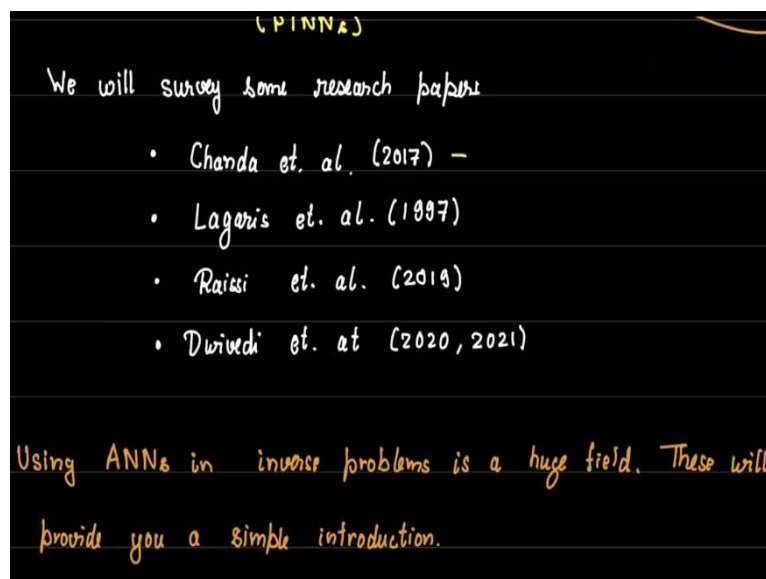 (PINNs)
We will survey some research papers
• Chanda et. al. (2017) –
• Lagaris et. al. (1997)
• Raissi et. al. (2019)
• Dwivedi et. at (2020, 2021)
Using ANNs in inverse problems is a huge field. These will
provide you a simple introduction.